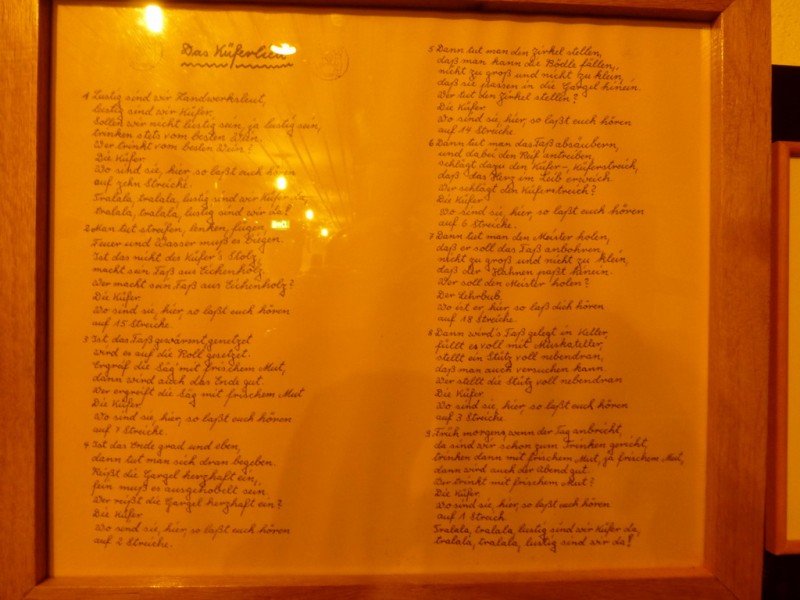 Das Küferlied
1 Lustig sind wir Handwerksleut,
lustig sind wir Küfer.
Sollen wir nicht lustig sein, ja lustig sein,
trinken stets vom besten Wein.
Wer trinkt vom besten Wein?
Die Küfer.
Wo sind sie, hier, so laßt euch hören
auf zehn Streiche.
Tralala, tralala, lustig sind wir Küfer da,
tralala, tralala, lustig sind wir da!
2 Man tut strafen, lenken, fügen,
Feuer und Wasser muß es biegen.
Ist das nicht des Küfer's Stolz,
macht sein Faß aus Eichenholz.
Wer macht sein Faß aus Eichenholz?
Die Küfer.
Wo sind sie, hier, so laßt euch hören
auf 15 Streiche.
3 Ist das Faß
wird es auf die Roll gesetzet.
Ergreif die Säg mit frischem Mut,
dann wird auch das Ende gut.
Wer ergreift die Säg mit frischem Mut
Die Küfer
Wo sind sie, hier, so laßt euch hören
auf 7 Streiche.
4 Ist das Ende grad und eben,
dann tut man sich daran begeben.
Reißt die Gargel herzhaft ein,
fein muß es ausgehobelt sein.
Wer reißt die Gargel herzhaft ein?
Die Küfer
Wo sind sie, hier, so laßt euch hören
auf 2 Streiche.
5 Dann tut man den Zirkel stellen,
daß man kann das Bödle fällen,
nicht zu groß und nicht zu klein,
daß sie passen in die Gargel hinein.
Wer tut den Zirkel stellen?
Die Küfer
Wo sind sie, hier, so laßt euch hören
auf 14 Streiche.
6 Dann tut man das Faß absäubern,
und dabei den Reif antreiben,
schlägt dazu den Küfer-, Küferstreich,
daß das Herz im Leib erweich.
Wer schlägt den Küferstreich?
Die Küfer.
Wo sind sie, hier, so laßt euch hören
auf 6 Streiche.
7 Dann tut man den Meister holen,
daß er soll das Faß anbohren,
nicht zu groß und nicht zu klein,
daß der Hahnen paßt hinein.
Wer soll den Meister holen?
Der Lehrbub.
Wo ist er, hier, so laß dich hören
auf 18 Streiche.
8 Dann wird's Faß gelegt in Keller,
füllt es voll mit Muskateller,
stellt ein Stütz voll nebendran,
daß man auch versuchen kann.
Wer stellt die Stütz voll nebendran
Die Küfer
Wo sind sie, hier, so laßt euch hören
auf 3 Streiche.
9 Früh morgens, wenn der Tag anbricht,
da sind wir schon zum Trinken gericht,
trinken dann mit frischem Mut, ja frischem Mut,
dann wird auch der Abend gut.
Wer trinkt mit frischem Mut?
Die Küfer
Wo sind sie, hier, so laßt euch hören
auf 1 Streich
Tralala, tralala, lustig sind wir Küfer da,
tralala, tralala, lustig sind wir da!